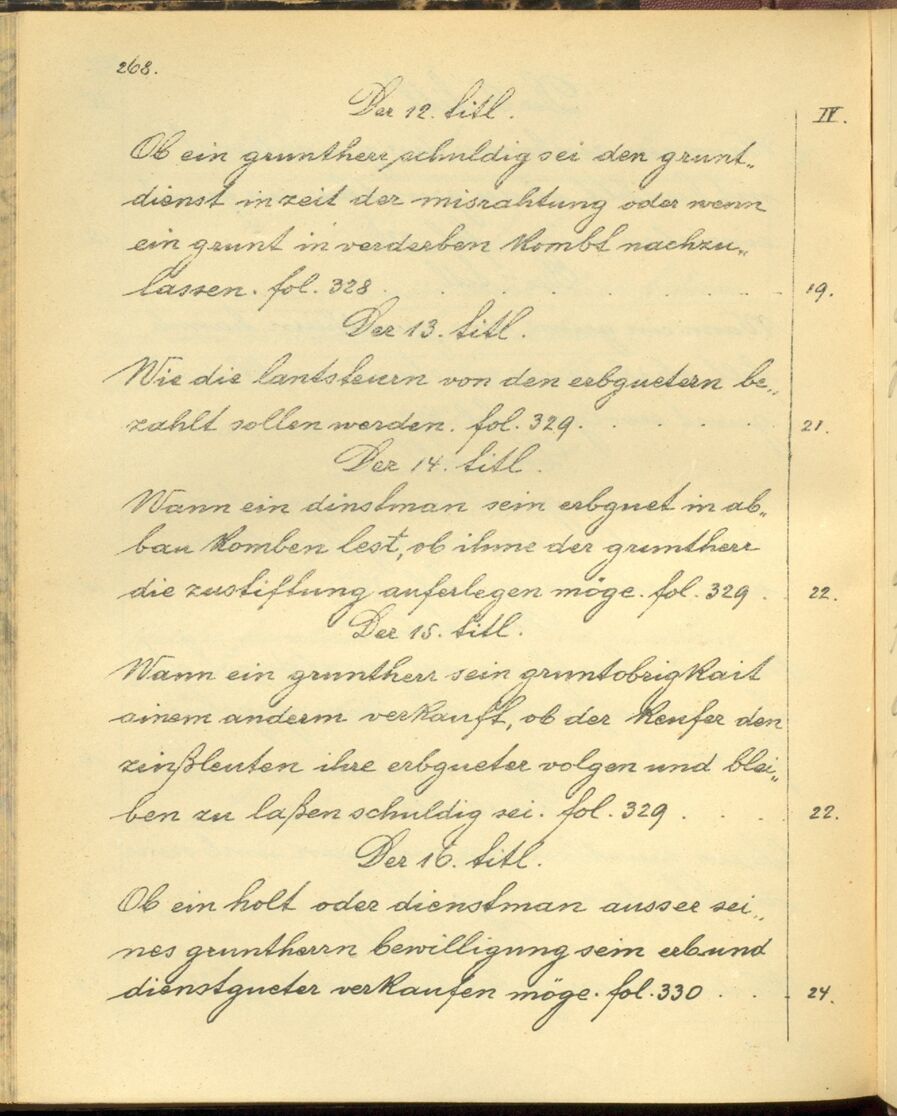 268.
IV.
Der 12. titl.
Ob ein gruntherr schuldig sei den grunt„
dienst in zeit der misrahtung oder wenn
ein grunt in verderben kombt nachzu„
lassen. fol. 328 . . . . . . . . 19.
Der 13. titl.
Wie die lantsteurn von den erbguetern be„
zahlt sollen werden. fol. 329. . . . . . 21.
Der 14. titl.
Wann ein dinstman sein erbguet in ab„
bau komben lest, ob ihme der gruntherr
die zustiftung auferlegen möge. fol. 329 . . 22.
Der 15. titl.
Wann ein gruntherr sein gruntobrigkait
einem anderm verkauft, ob der keufer den
zinßleuten ihre erbgueter volgen und blei„
ben zu laßen schuldig sei. fol. 329 . . . . 22.
Der 16. titl.
Ob ein holt oder dienstman ausser sei„
nes gruntherrn bewilligung sein erb und
dienstgueter verkaufen möge. fol. 330 . . . 24.